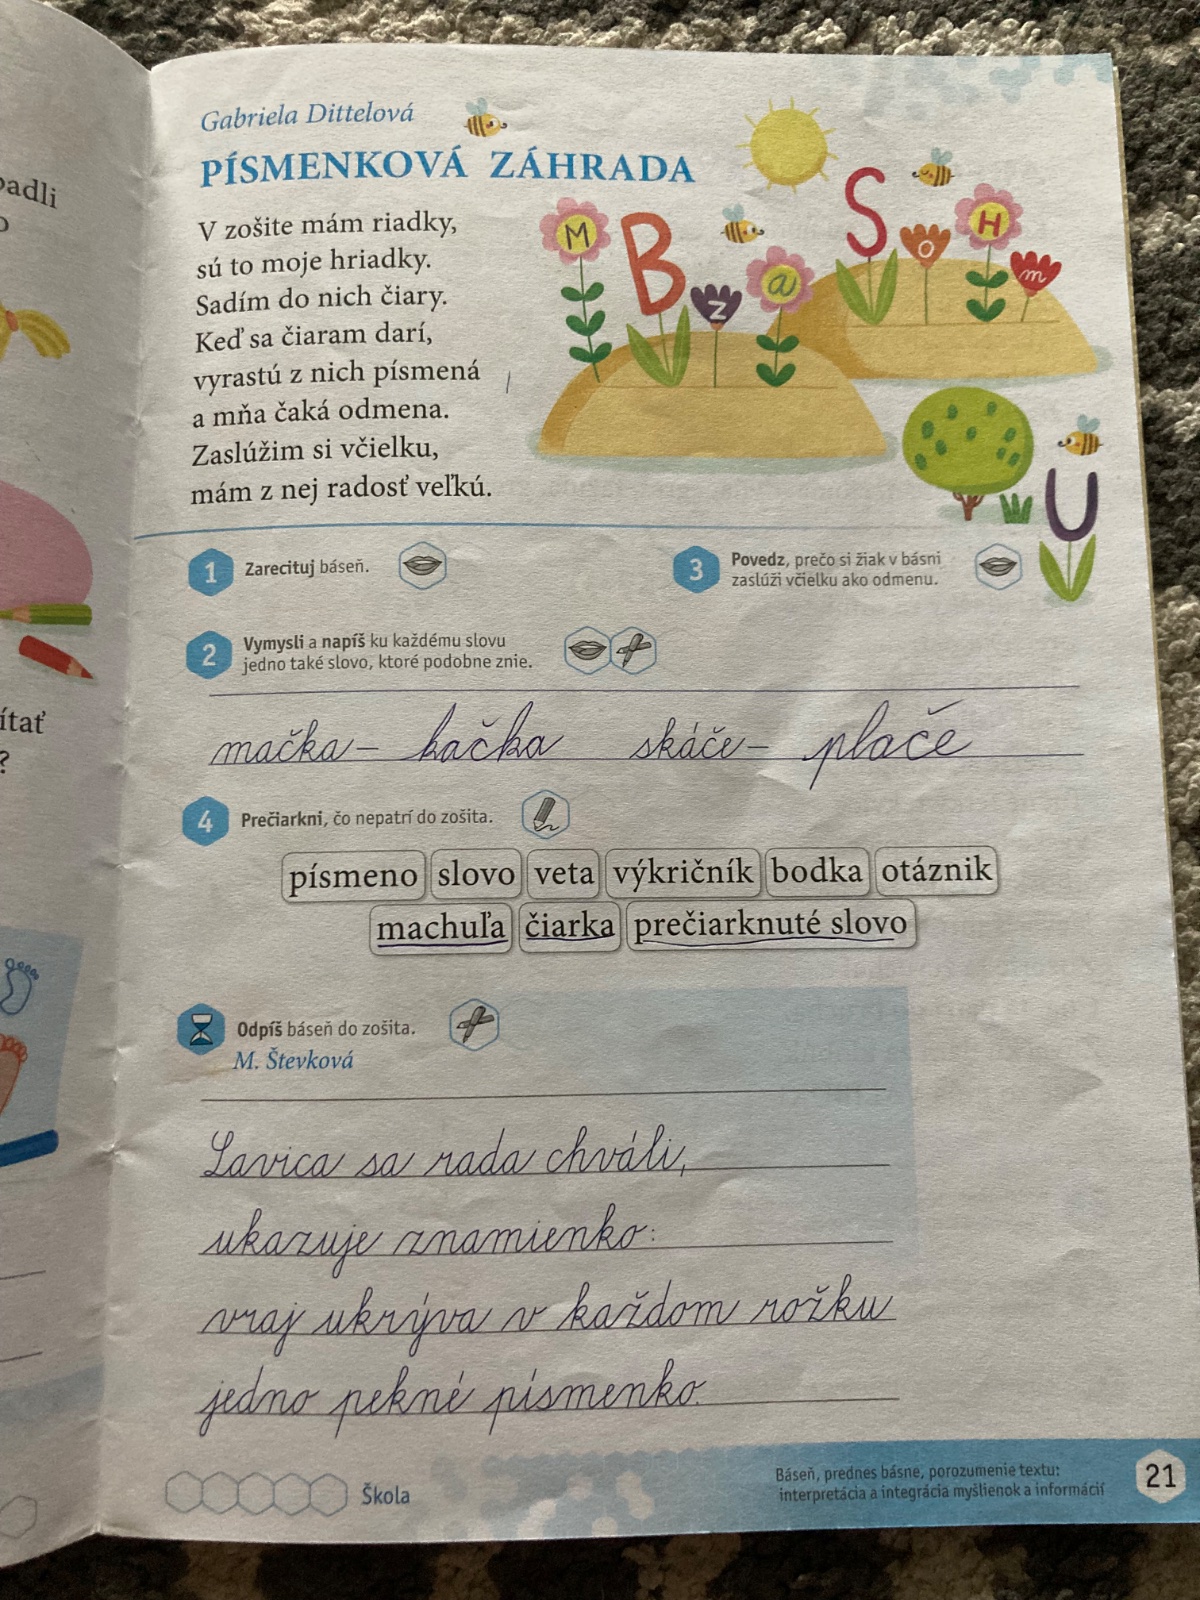 adli
Gabriela Dittelová
PÍSMENKOVÁ ZÁHRADA
M B z a S o H m
U
V zošite mám riadky,
sú to moje hriadky.
Sadím do nich čiary.
Keď sa čiaram darí,
vyrastú z nich písmená
a mňa čaká odmena.
Zaslúžim si včielku,
mám z nej radosť veľkú.
1 Zarecituj báseň.
3 Povedz, prečo si žiak v básni
zaslúži včielku ako odmenu.
2 Vymysli a napíš ku každému slovu
jedno také slovo, ktoré podobne znie.
ítať
?
mačka – kačka skáče – plače
4 Prečiarkni, čo nepatrí do zošita.
písmeno slovo veta výkričník bodka otáznik
machuľa čiarka prečiarknuté slovo
Odpíš báseň do zošita.
M. Števková
Lavica sa rada chváli,
ukazuje znamienko:
vraj ukrýva v každom rožku
jedno pekné písmenko.
Škola
Báseň, prednes básne, porozumenie textu:
interpretácia a integrácia myšlienok a informácií
21